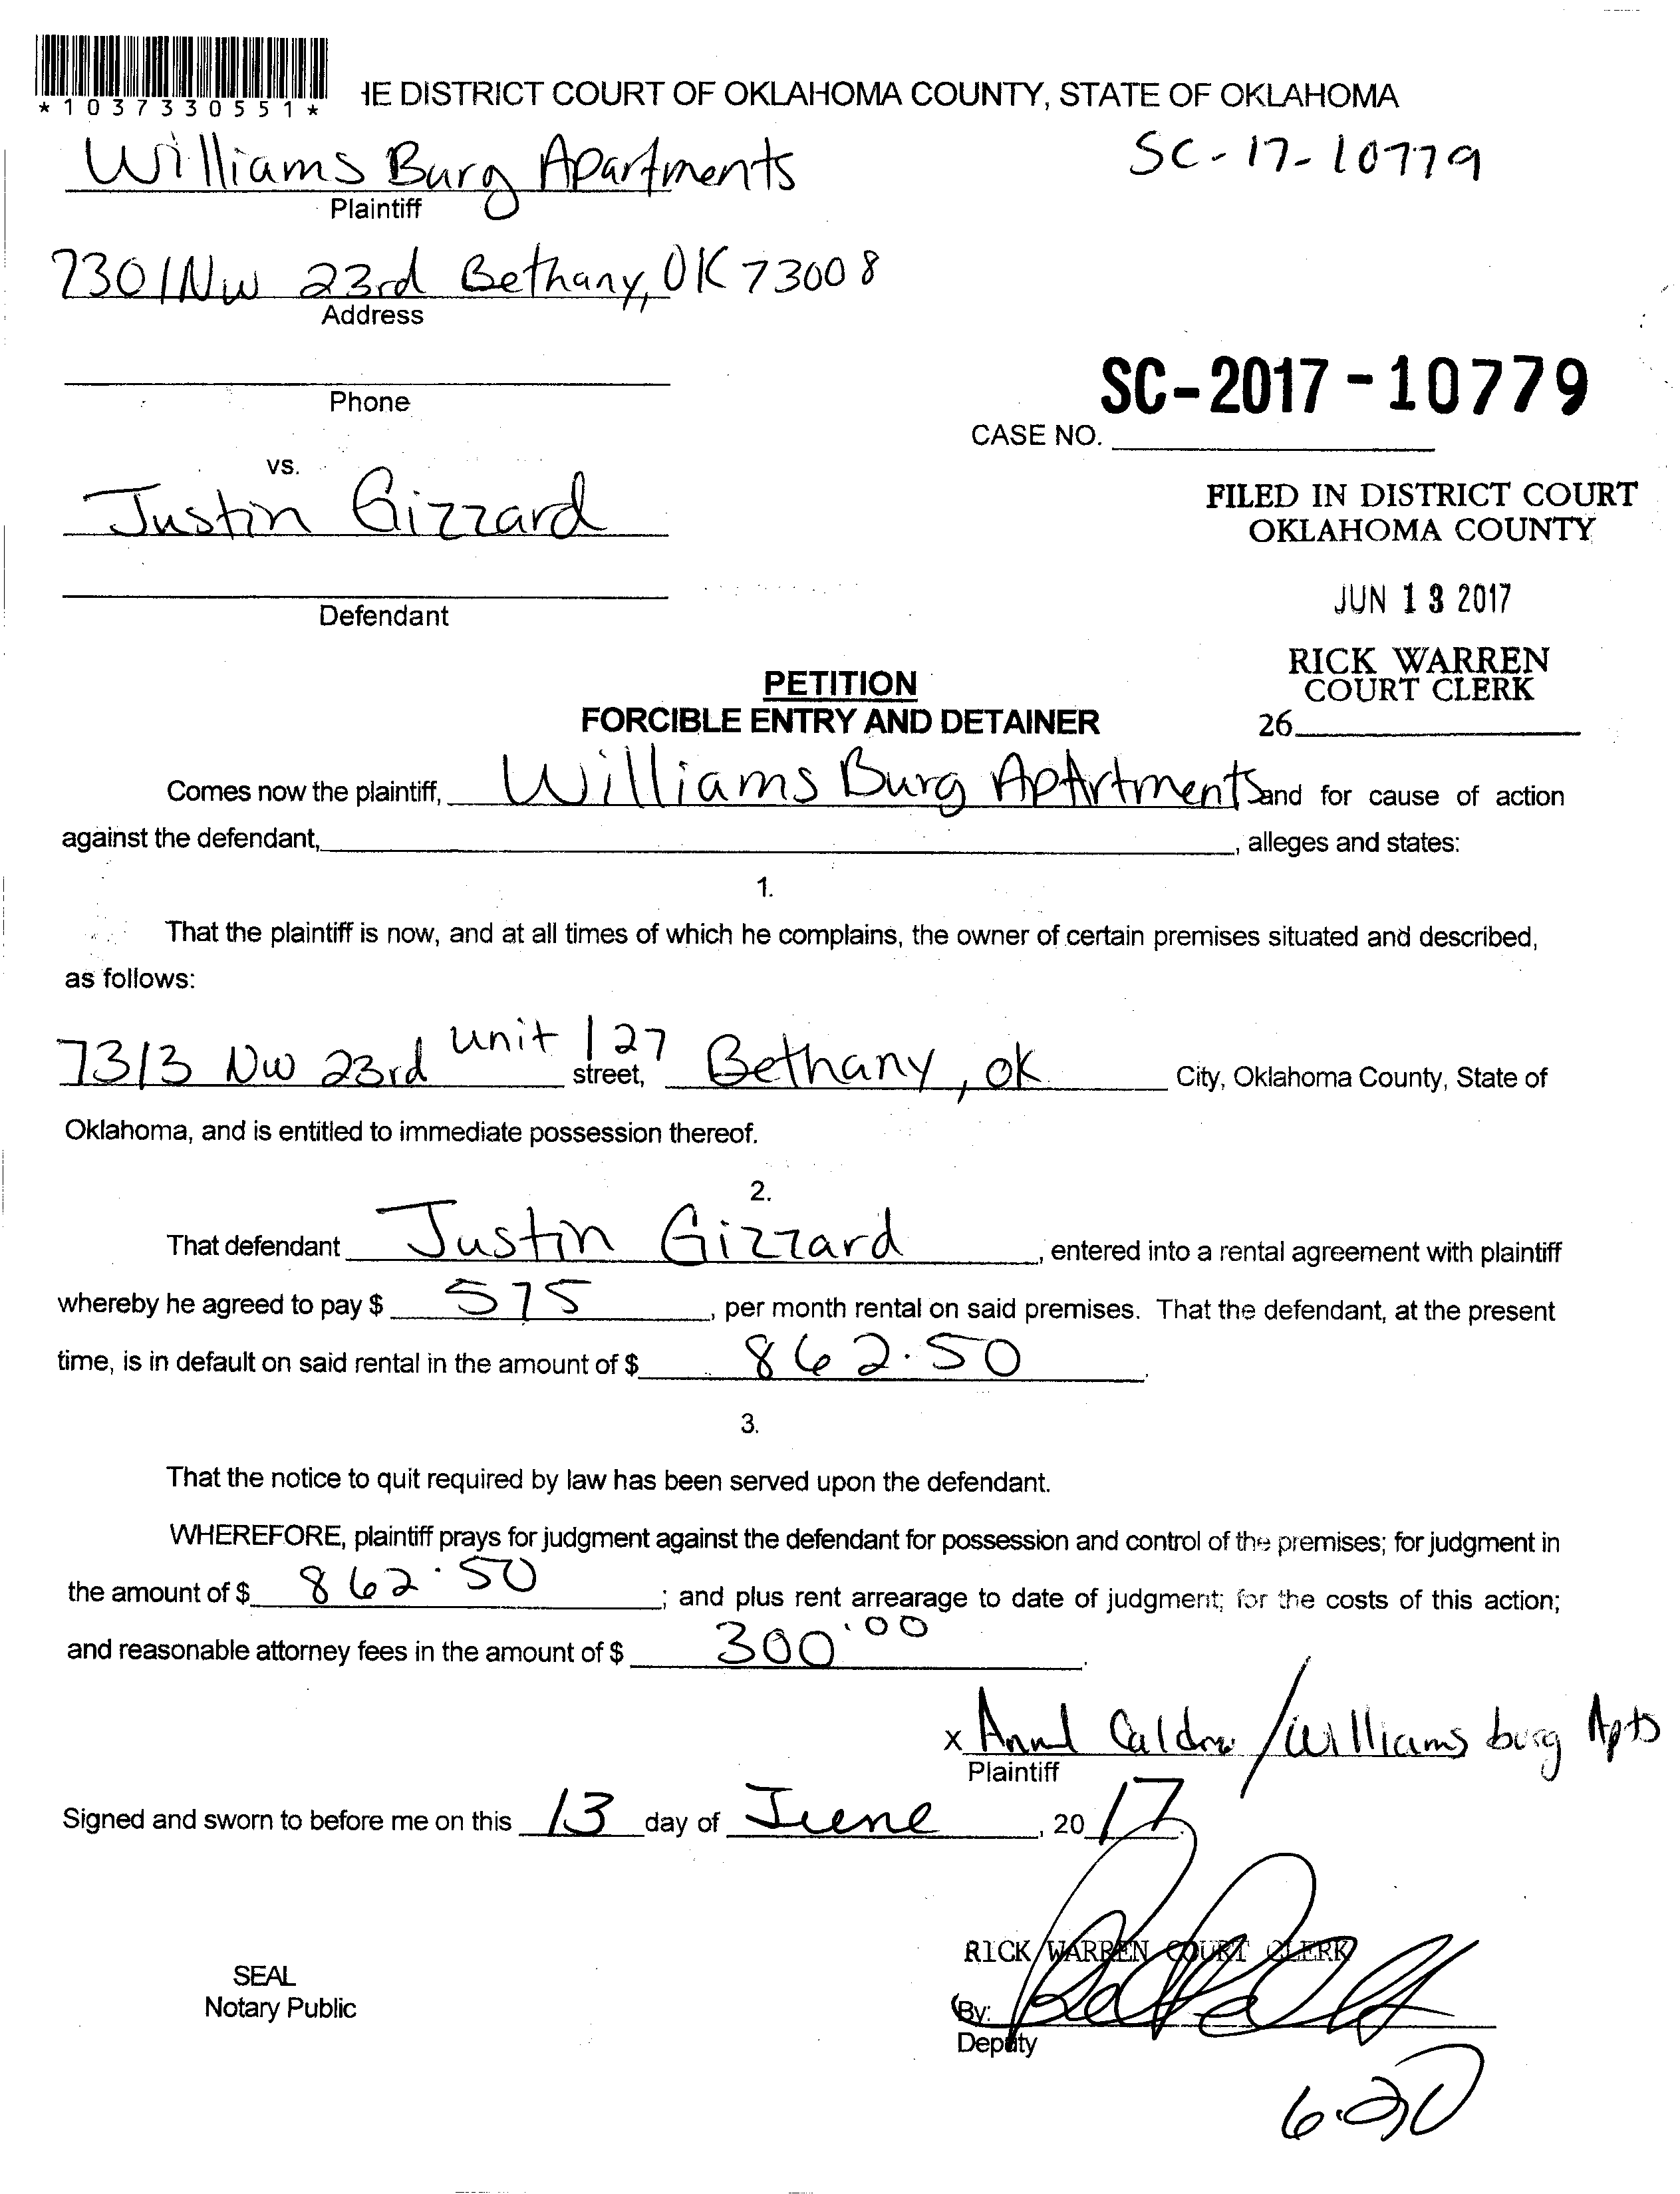 *1037330551*
HE DISTRICT COURT OF OKLAHOMA COUNTY, STATE OF OKLAHOMA
Williams Burg Apartments
SC-17-10779
Plaintiff
7301 NW 23rd Bethany, OK 73008
Address
SC-2017-10779
Phone
CASE NO.
vs.
Justin Gizzard
FILED IN DISTRICT COURT
OKLAHOMA COUNTY
JUN 13 2017
Defendant
RICK WARREN
COURT CLERK
26
PETITION
FORCIBLE ENTRY AND DETAINER
Comes now the plaintiff, Williams Burg Apartments and for cause of action
against the defendant, , alleges and states:
1.
That the plaintiff is now, and at all times of which he complains, the owner of certain premises situated and described,
as follows:
7313 NW 23rd unit 127 street, Bethany, OK City, Oklahoma County, State of
Oklahoma, and is entitled to immediate possession thereof.
2.
That defendant Justin Gizzard, entered into a rental agreement with plaintiff
whereby he agreed to pay $ 575, per month rental on said premises. That the defendant, at the present
time, is in default on said rental in the amount of $ 862.50.
3.
That the notice to quit required by law has been served upon the defendant.
WHEREFORE, plaintiff prays for judgment against the defendant for possession and control of the premises; for judgment in
the amount of $ 862.50; and plus rent arrearage to date of judgment; for the costs of this action;
and reasonable attorney fees in the amount of $ 300.00.
x / Williams burg Apts
Plaintiff
Signed and sworn to before me on this 13 day of June, 20 17.
RICK WARREN COURT CLERK
SEAL
Notary Public
By:
Deputy
6-20